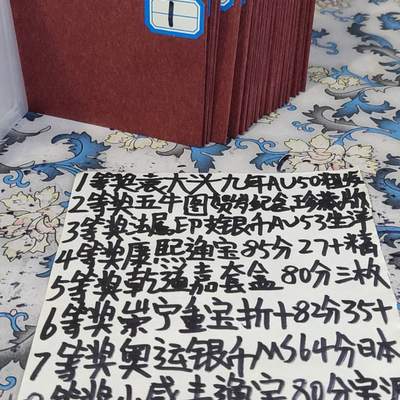 1
1等奖袁大头九年AU50粗发
2等奖五牛图贺岁纪念
3等奖法属印支银币AU53坐洋
4等奖康熙通宝85分27+福
5等奖乾道嘉套盒80分三枚
6等奖崇宁重宝折十82分35+
7等奖奥运银币MS64分日本
8等奖小咸丰通宝80分宝源